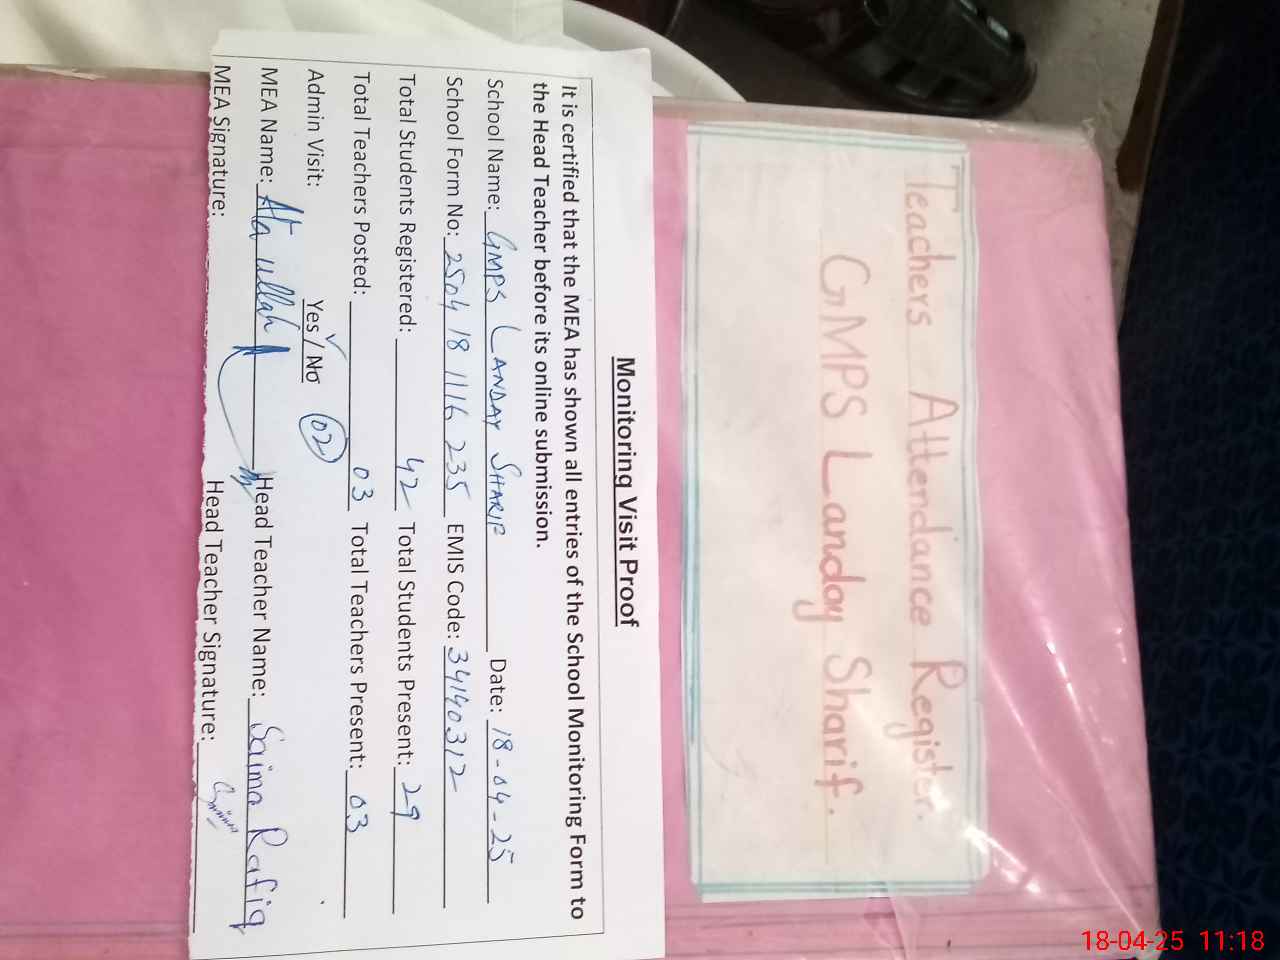 Teachers Attendance Register.
GMPS Landay Sharif.
Monitoring Visit Proof
It is certified that the MEA has shown all entries of the School Monitoring Form to
the Head Teacher before its online submission.
School Name: GMPS LANDAY SHARIF Date: 18-04-25
School Form No: 2504 18 1116 235 EMIS Code: 34140312
Total Students Registered: 42 Total Students Present: 29
Total Teachers Posted: 03 Total Teachers Present: 03
Admin Visit: Yes / No 02
MEA Name: Ata ullah Head Teacher Name: Saima Rafiq
MEA Signature: Head Teacher Signature:
18-04-25 11:18